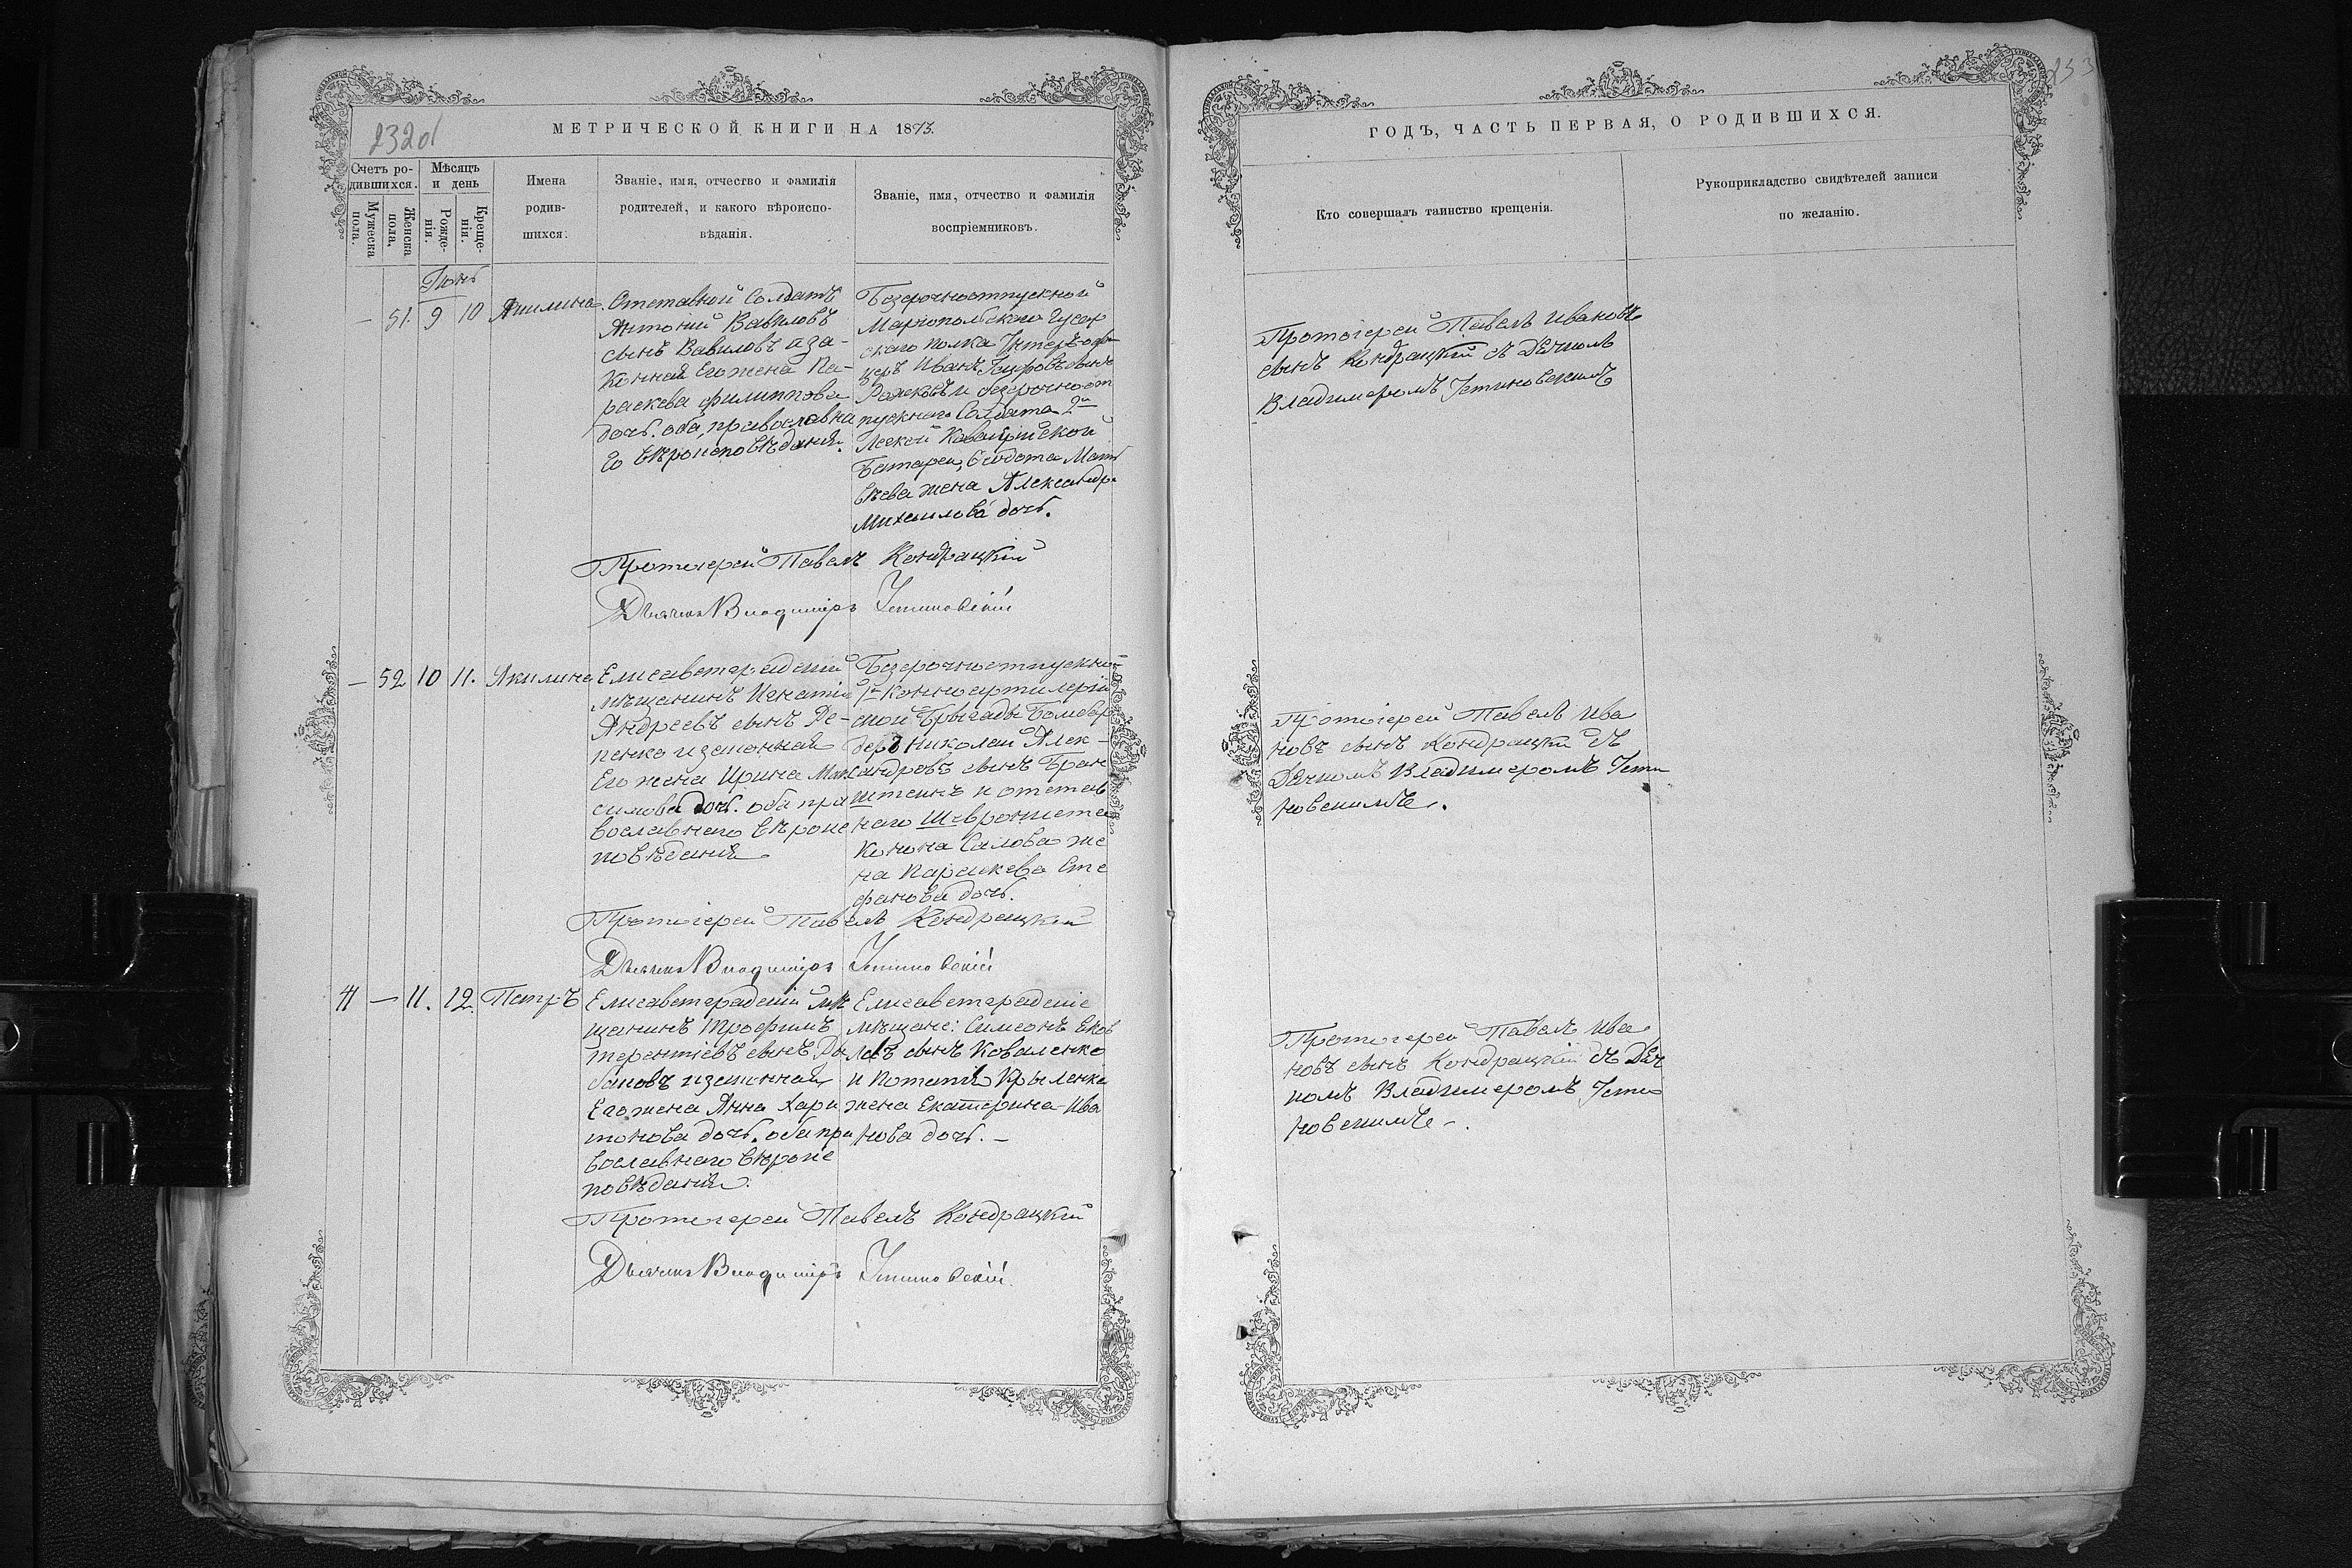 232об
МЕТРИЧЕСКОЙ КНИГИ НА 1873.
Счетъ ро-
дившихся.
Мужеска
пола.
Женска
пола.
Мѣсяцъ
и день
Рожде-
нія.
Креще-
нія.
Имена
родив-
шихся.
Званіе, имя, отчество и фамилія
родителей, и какого вѣроиспо-
вѣданія.
Званіе, имя, отчество и фамилія
воспріемниковъ.
Іюнь
— 51. 9 10 Акилина
Отставной Солдатъ
Антоній Вавиловъ
сынъ Вавиловъ и за-
конная Его жена Па-
раскева филиппова
дочь. оба, православна
го вѣроисповѣданія.
Безсрочноотпускной
Маріопольскаго Гусар
скаго полка Унтеръ-оф
церъ Иванъ сынъ
и безсрочноот
пускнаго Солдата 2й
Батареи, Матѳ
ѣева жена Александр.
Михаилова дочь.
Протоіерей Павелъ Кондрацкій
Дьячекъ Владиміръ Устиновскій
— 52 10 11. Акилина
Елисаветградскій
мѣщанинъ Игнатій
Андреевъ сынъ Ре-
пенко и законная
Его жена Ирина Мак
симова дочь. оба пра
вославнаго вѣроис
повѣданія
Безсрочноотпускной
1й конноартилерій
ской Бригады Бомбар
деръ Николай Алек-
андровъ сынъ Бран
штеинъ и отстав
наго
Конона Салова же
на Параскева Сте
фанова дочь.
Протоіерей Павелъ Кондрацкій
Дьячекъ Владиміръ Устиновскій
41 — 11. 12. Петръ
Елисаветградскій мѣ
щанинъ Трофимъ
терентіевъ сынъ
и законная
Его жена Анна Хари
тонова дочь. оба пра
вославнаго вѣроис
повѣданія.
Елисаветградскіе
мѣщане: Симеонъ Яков
левъ сынъ Коваленко
и Потапія Крыленка
жена Екатерина Ива
нова дочь. —
Протоіерей Павелъ Кондрацкій
Дьячекъ Владиміръ Устиновскій
253
ГОДЪ, ЧАСТЬ ПЕРВАЯ, О РОДИВШИХСЯ.
Кто совершалъ таинство крещенія.
Рукоприкладство свидѣтелей записи
по желанію.
Протоіерей Павелъ Ивановъ
сынъ Кондрацкій съ Дячкомъ
Владимеромъ Устиновскимъ
Протоіерей Павелъ Ива
новъ сынъ Кондрацкій съ
Дячкомъ Владимеромъ Усти
новскимъ.
Протоіерей Павелъ Ива
новъ сынъ Кондрацкій съ Дяч
комъ Владимеромъ Усти
новскимъ.